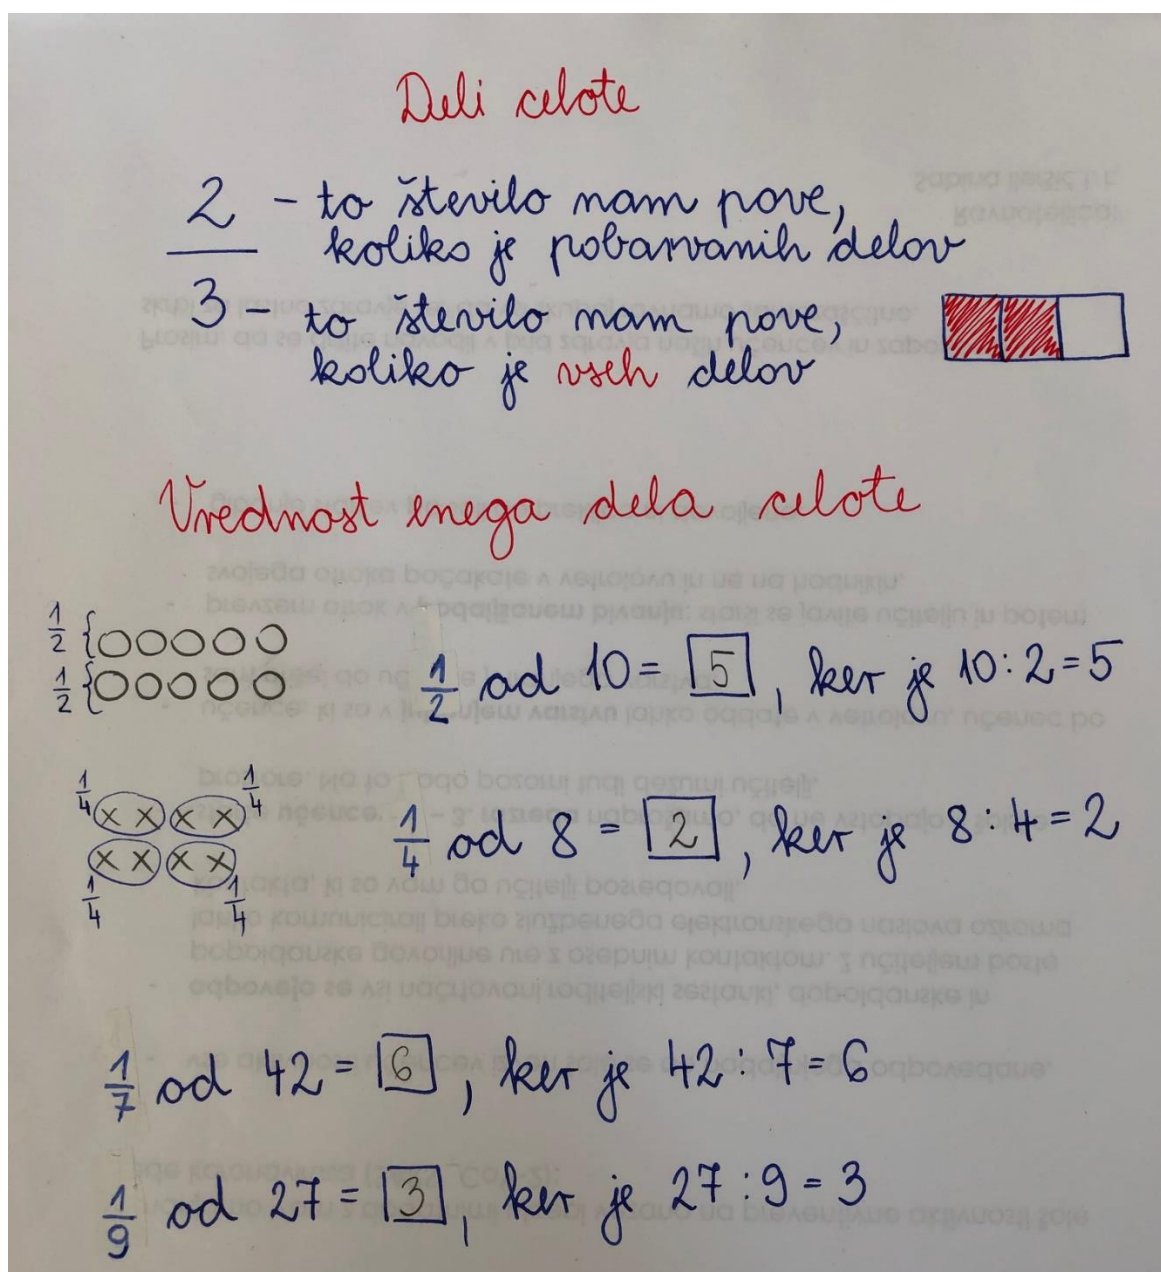 Deli celote
2 - to število nam pove,
koliko je pobarvanih delov
3 - to število nam pove,
koliko je vseh delov
Vrednost enega dela celote
1/2
1/2
1/2 od 10 = 5, ker je 10 : 2 = 5
1/4 1/4
x x x x
1/4 od 8 = 2, ker je 8 : 4 = 2
x x x x
1/4 1/4
1/7 od 42 = 6, ker je 42 : 7 = 6
1/9 od 27 = 3, ker je 27 : 9 = 3